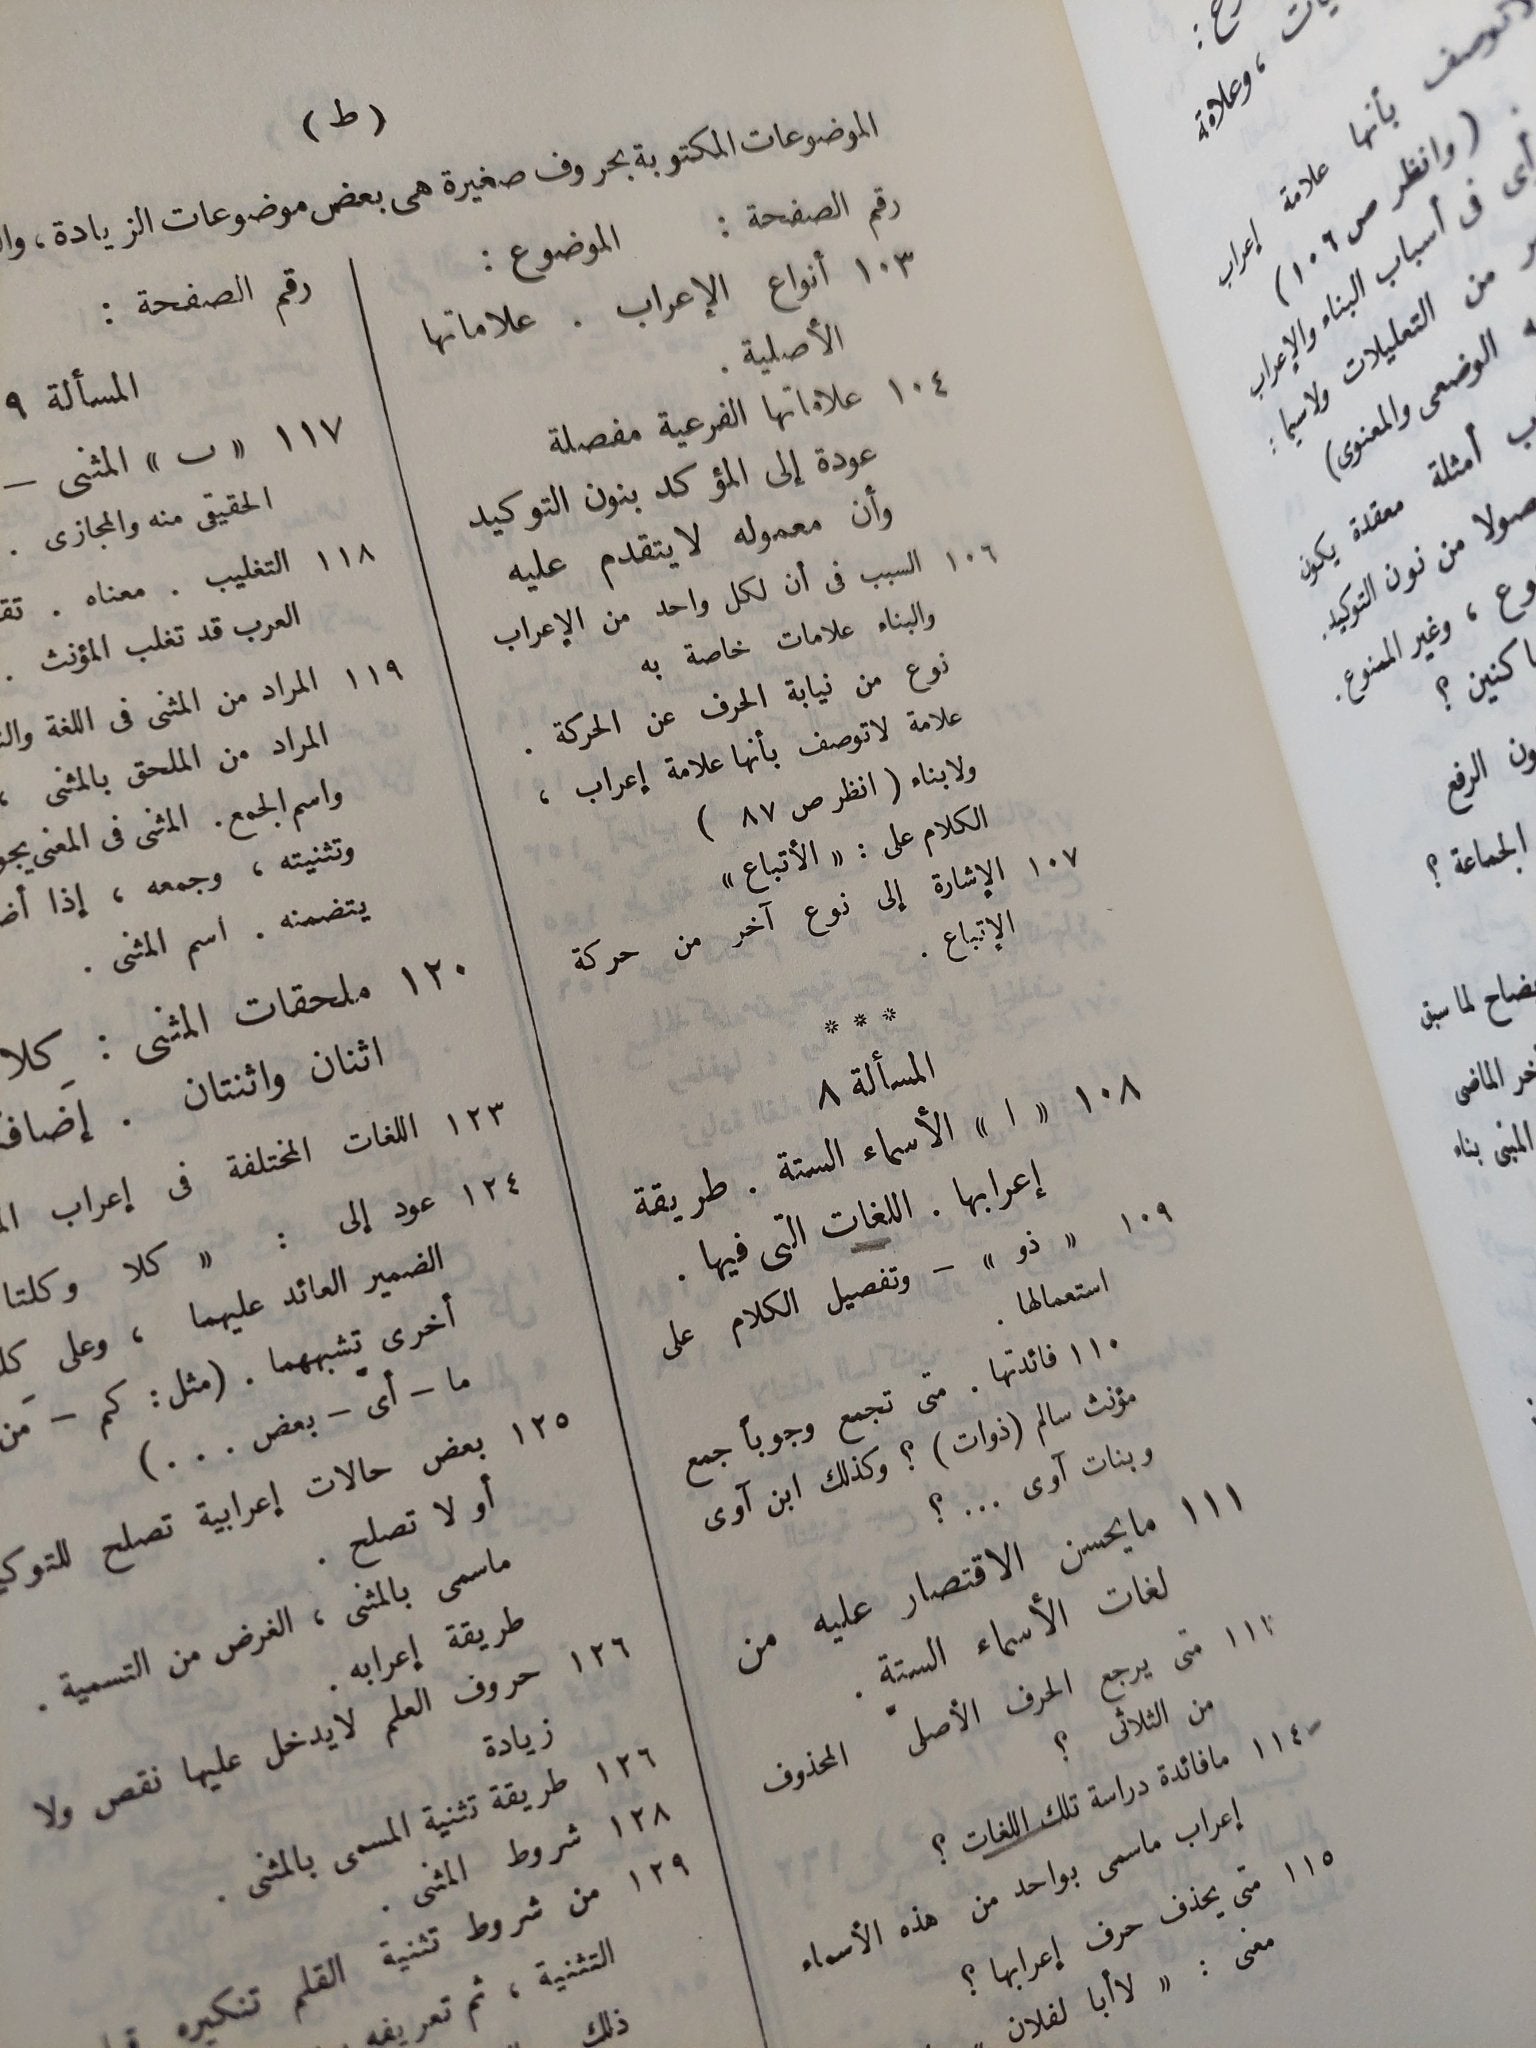 ( ط )
الموضوعات المكتوبة بحروف صغيرة هى بعض موضوعات الزيادة ،
رقم الصفحة : الموضوع :
١٠٣ أنواع الإعراب . علاماتها
الأصلية .
١٠٤ علاماتها الفرعية مفصلة
عودة إلى المؤكد بنون التوكيد
وأن معموله لا يتقدم عليه
١٠٦ السبب فى أن لكل واحد من الإعراب
والبناء علامات خاصة به
نوع من نيابة الحرف عن الحركة .
علامة لاتوصف بأنها علامة إعراب ،
ولابناء ( انظر ص ٨٧ )
الكلام على : « الأتباع »
١٠٧ الإشارة إلى نوع آخر من حركة
الإتباع .
* * *
المسألة ٨
١٠٨ « ا » الأسماء الستة . طريقة
إعرابها . اللغات التى فيها .
١٠٩ « ذو » – وتفصيل الكلام على
استعمالها .
١١٠ فائدتها . متى تجمع وجوباً جمع
مؤنث سالم (ذوات) ؟ وكذلك ابن آوى
وبنات آوى ... ؟
١١١ مايحسن الاقتصار عليه من
لغات الأسماء الستة .
متى يرجع الحرف الأصلى المحذوف
من الثلاثى ؟
١١٤ مافائدة دراسة تلك اللغات ؟
إعراب ماسمى بواحد من هذه الأسماء
١١٥ متى يحذف حرف إعرابها ؟
معنى : « لاأبا لفلان »
رقم الصفحة :
المسألة ٩
١١٧ « ب » المثنى –
الحقيقى منه والمجازى .
١١٨ التغليب . معناه .
العرب قد تغلب المؤنث .
١١٩ المراد من المثنى فى اللغة
المراد من الملحق بالمثنى ،
واسم الجمع . المثنى فى المعنى
وتثنيته ، وجمعه ، إذا
يتضمنه . اسم المثنى .
١٢٠ ملحقات المثنى : كِلا
اثنان واثنتان .
١٢٣ اللغات المختلفة فى إعراب
١٢٤ عود إلى : « كلا وكلتا
الضمير العائد عليهما ، وعلى
أخرى تشبههما . (مثل : كم – مَن
ما – أى – بعض . . . )
١٢٥ بعض حالات إعرابية تصلح
أو لا تصلح .
ماسمى بالمثنى ، الغرض من التسمية .
طريقة إعرابه .
١٢٦ حروف العلم لايدخل عليها نقص ولا
زيادة
١٢٦ طريقة تثنية المسمى بالمثنى .
١٢٨ شروط المثنى .
١٢٩ من شروط تثنية القلم تنكيره
التثنية ، ثم تعريفه
ذلك
، وعلامة
لاتوصف بأنها علامة إعراب
. ( وانظر ص ١٠٦ )
فى أسباب البناء والإعراب
من التعليلات ولاسيما :
الوضعى والمعنوى )
أمثلة معقدة يكون
من نون التوكيد .
، وغير الممنوع .
؟
الرفع
الجماعة ؟
لما سبق
الماضى
المبنى بناء